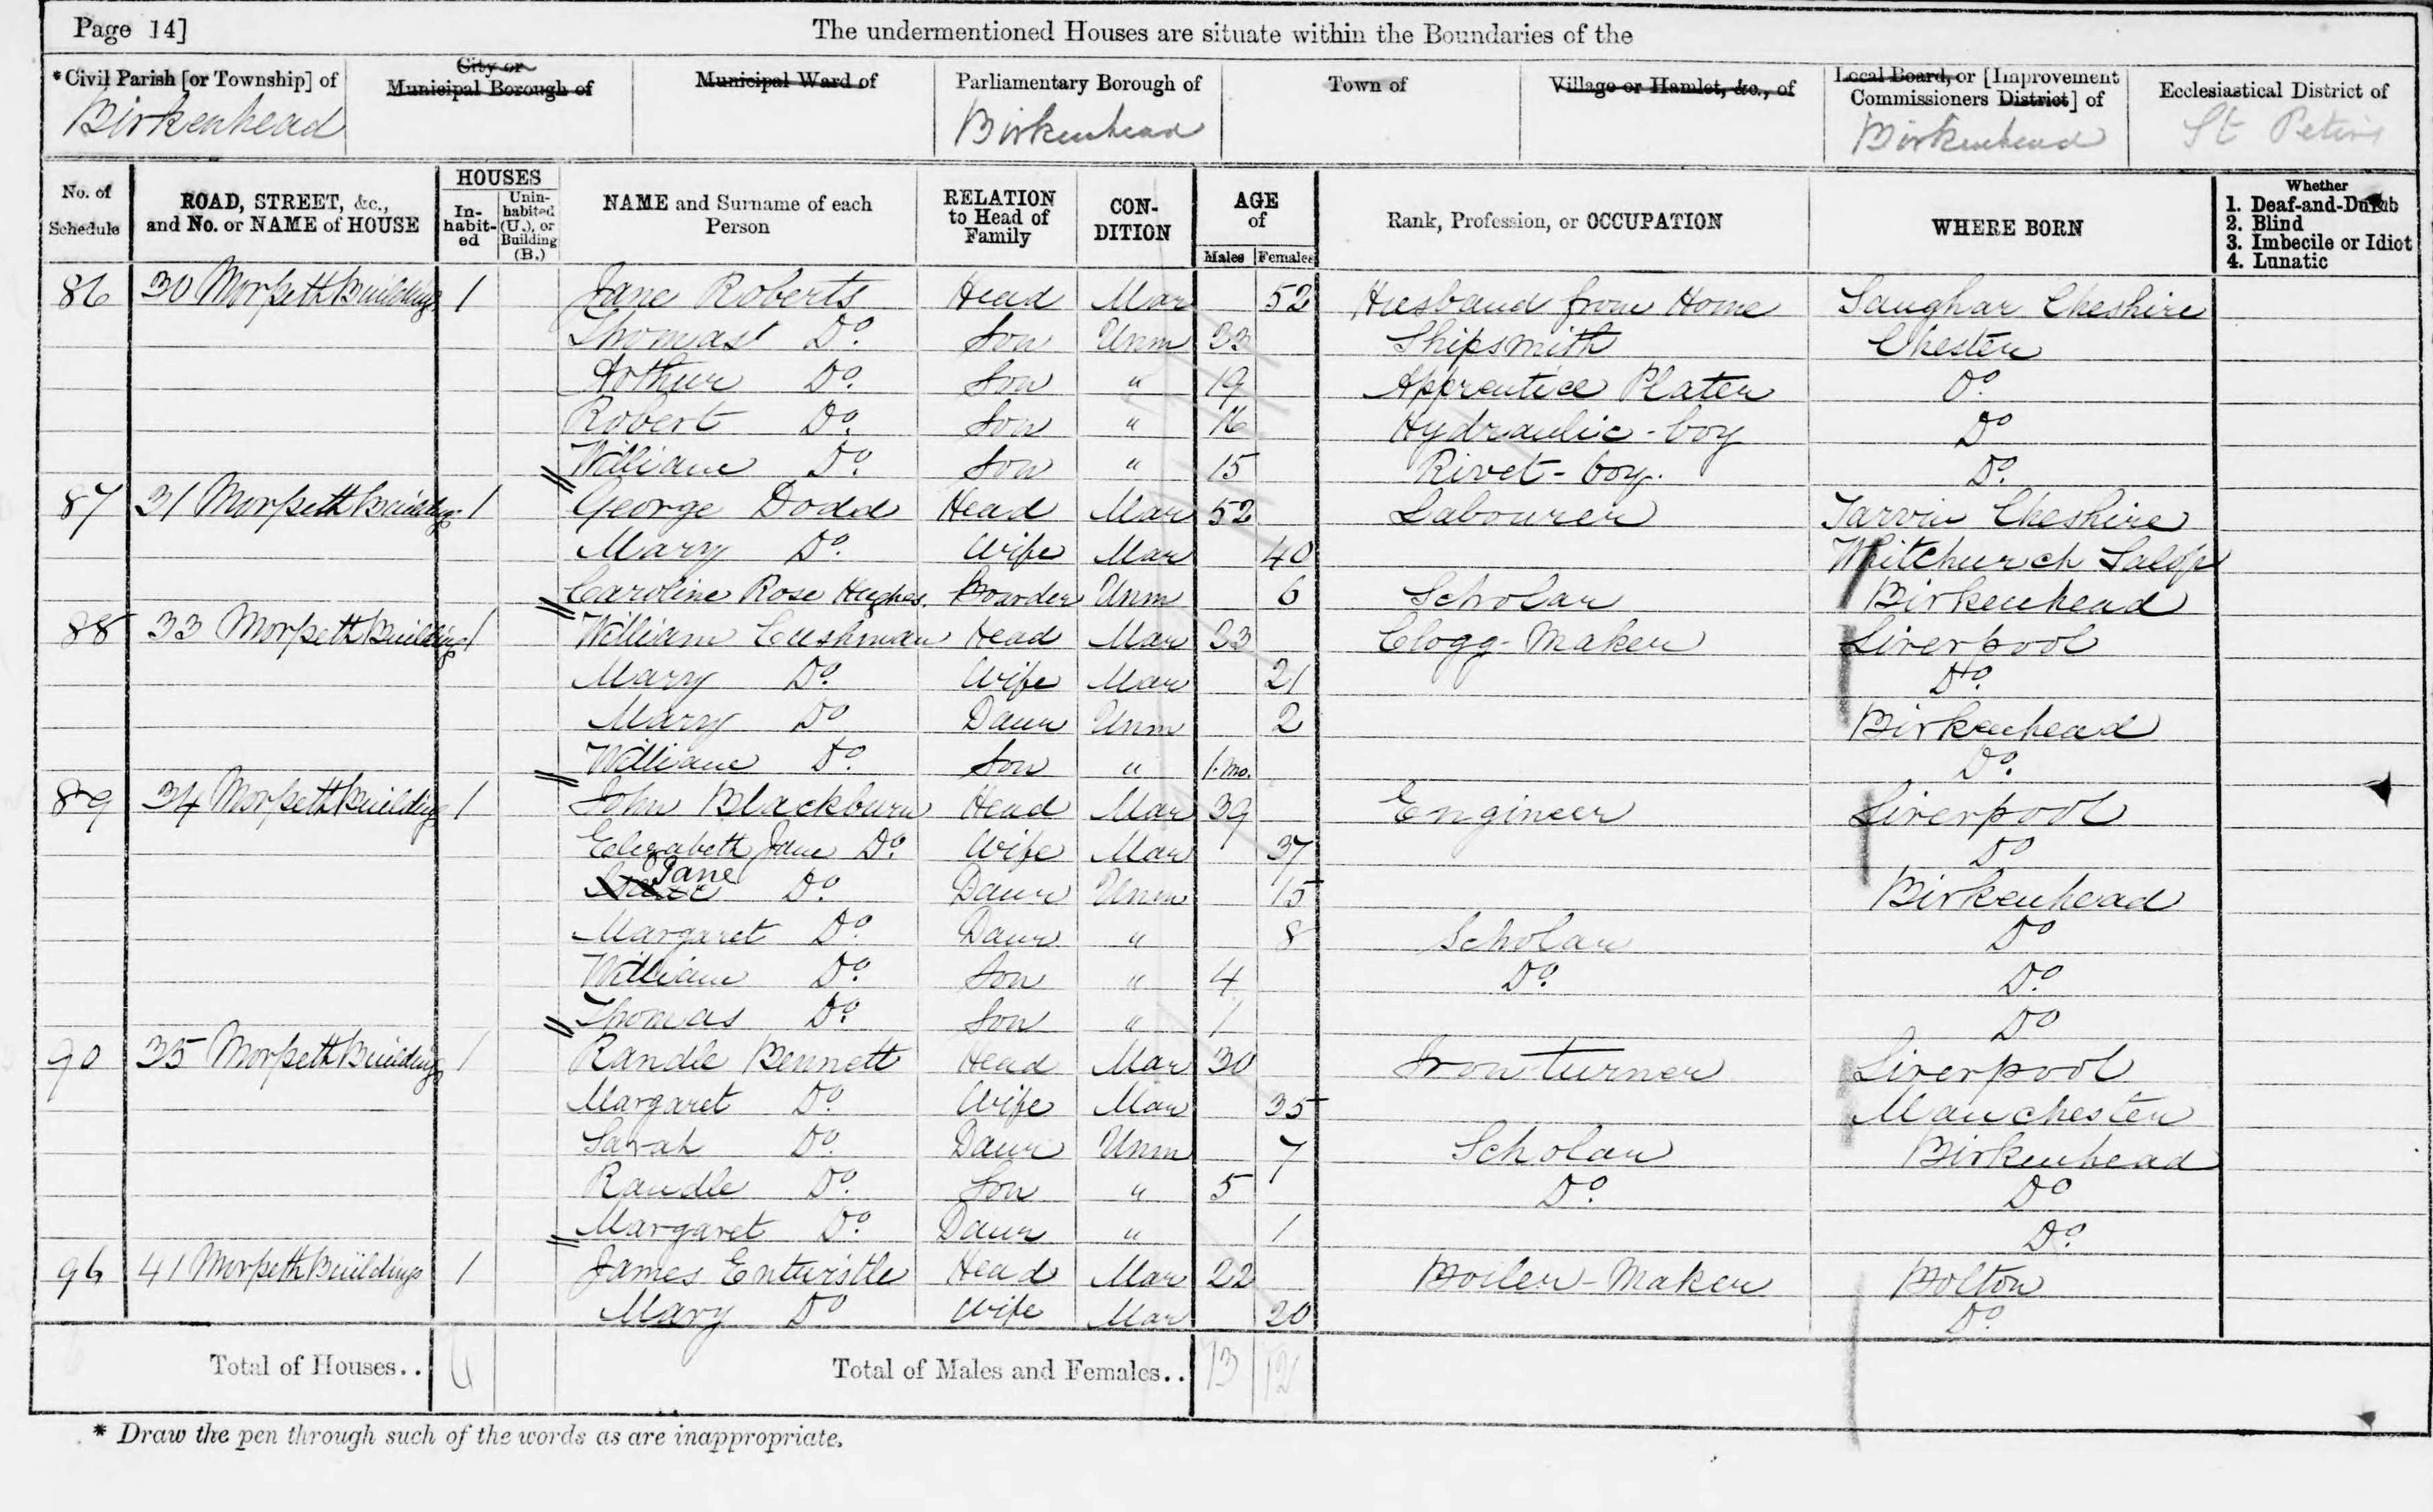 Page 14]
The undermentioned Houses are situate within the Boundaries of the
*Civil Parish [or Township] of Birkenhead
City or Municipal Borough of
Municipal Ward of
Parliamentary Borough of Birkenhead
Town of
Village or Hamlet, &c., of
Local Board, or [Improvement Commissioners District] of Birkenhead
Ecclesiastical District of St Peters
No. of Schedule
ROAD, STREET, &c., and No. or NAME of HOUSE
HOUSES
In-habit-ed
Unin-habited (U.), or Building (B.)
NAME and Surname of each Person
RELATION to Head of Family
CON-DITION
AGE of
Males Females
Rank, Profession, or OCCUPATION
WHERE BORN
Whether
1. Deaf-and-Dumb
2. Blind
3. Imbecile or Idiot
4. Lunatic
86 30 Morpeth Buildings 1 Jane Roberts Head Mar 52 Husband from Home Saughar Cheshire
Thomas Do. Son Unm 23 Shipsmith Chester
Arthur Do. Son " 19 Apprentice Plater Do.
Robert Do. Son " 16 Hydraulic-boy Do
William Do. Son " 15 Rivet-boy. Do.
87 31 Morpeth Buildings 1 George Dodd Head Mar 52 Labourer Tarvin Cheshire
Mary Do. Wife Mar 40 Whitchurch Salop
Caroline Rose Hughes. Boarder Unm 6 Scholar Birkenhead
88 33 Morpeth Buildings 1 William Cushman Head Mar 23 Clogg-Maker Liverpool
Mary Do. Wife Mar 21 Do.
Mary Do Daur Unm 2 Birkenhead
William Do. Son " 1.mo. Do.
89 34 Morpeth Buildings 1 John Blackburn Head Mar 39 Engineer Liverpool
Elizabeth Jane Do. Wife Mar 37 Do
Jane Do. Daur Unm 15 Birkenhead
Margaret Do. Daur " 8 Scholar Do
William Do. Son " 4 Do. Do.
Thomas Do. Son " 1 Do
90 35 Morpeth Buildings 1 Randle Bennett Head Mar 30 Iron turner Liverpool
Margaret Do. Wife Mar 35 Manchester
Sarah Do. Daur Unm 7 Scholar Birkenhead
Randle Do. Son " 5 Do. Do
Margaret Do. Daur " 1 Do.
41 Morpeth Buildings 1 James Entwistle Head Mar 22 Boiler-Maker Bolton
Mary Do Wife Mar 20 Do.
Total of Houses..
Total of Males and Females.. 13 12
* Draw the pen through such of the words as are inappropriate.